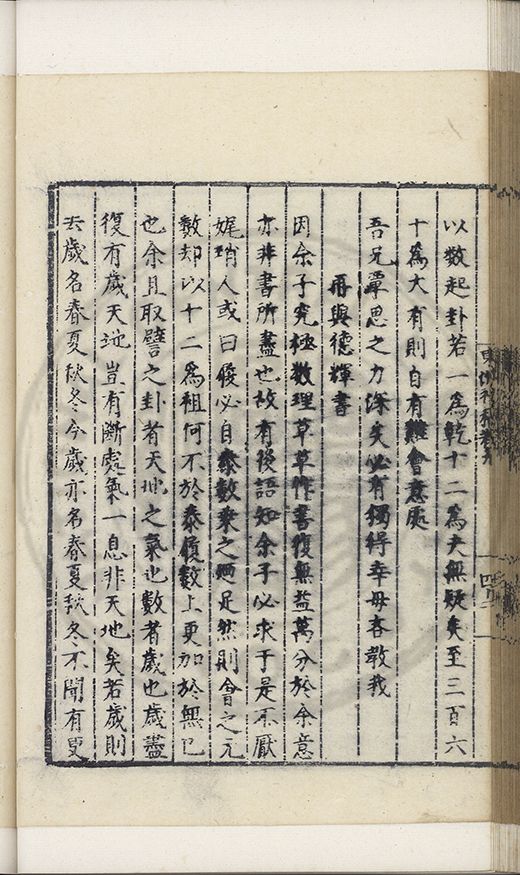 以数起卦若一為乾十二為夬無疑矣至三百六
十為大有則自有難會意處
吾兄覃思之力深矣必有獨得幸毋吝教我
再與德輝書
因余子究極数理草草作書復無盖萬分於余意
亦非書所盡也故有後語知余子必求于是不厭
娓瑣人或曰復必自泰数乗之廼足然則會之元
数却以十二為祖何不於泰復数上更加於無已
也余且取譬之卦者天地之氣也数者歲也歲盡
復有歲天地豈有断處氣一息非天地矣若歲則
去歲名春夏秋冬今歲亦名春夏秋冬不聞有更